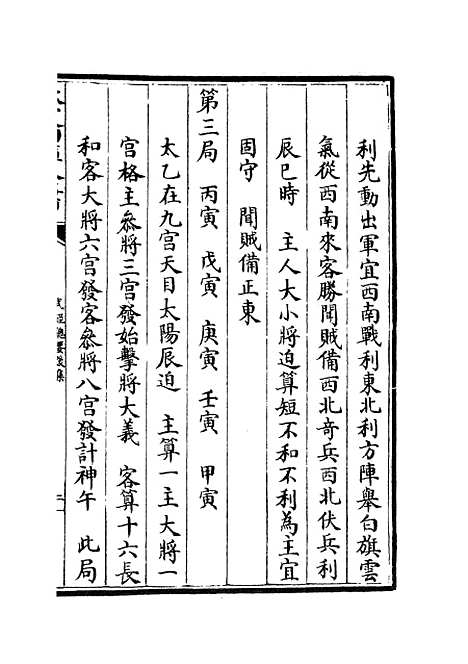 利先動出軍宜西南戰利東北利方陣舉白旗雲
氣從西南來客勝聞賊備西北竒兵西北伏兵利
辰巳時 主人大小將迫算短不和不利為主宜
固守 聞賊備正東
第三局 丙寅 戊寅 庚寅 壬寅 甲寅
太乙在九宫天目太陽辰迫 主算一主大將一
宫格主叅將三宫發始擊將大義 客算十六長
和客大將六宫發客叅將八宫發計神午 此局
武經總要後集